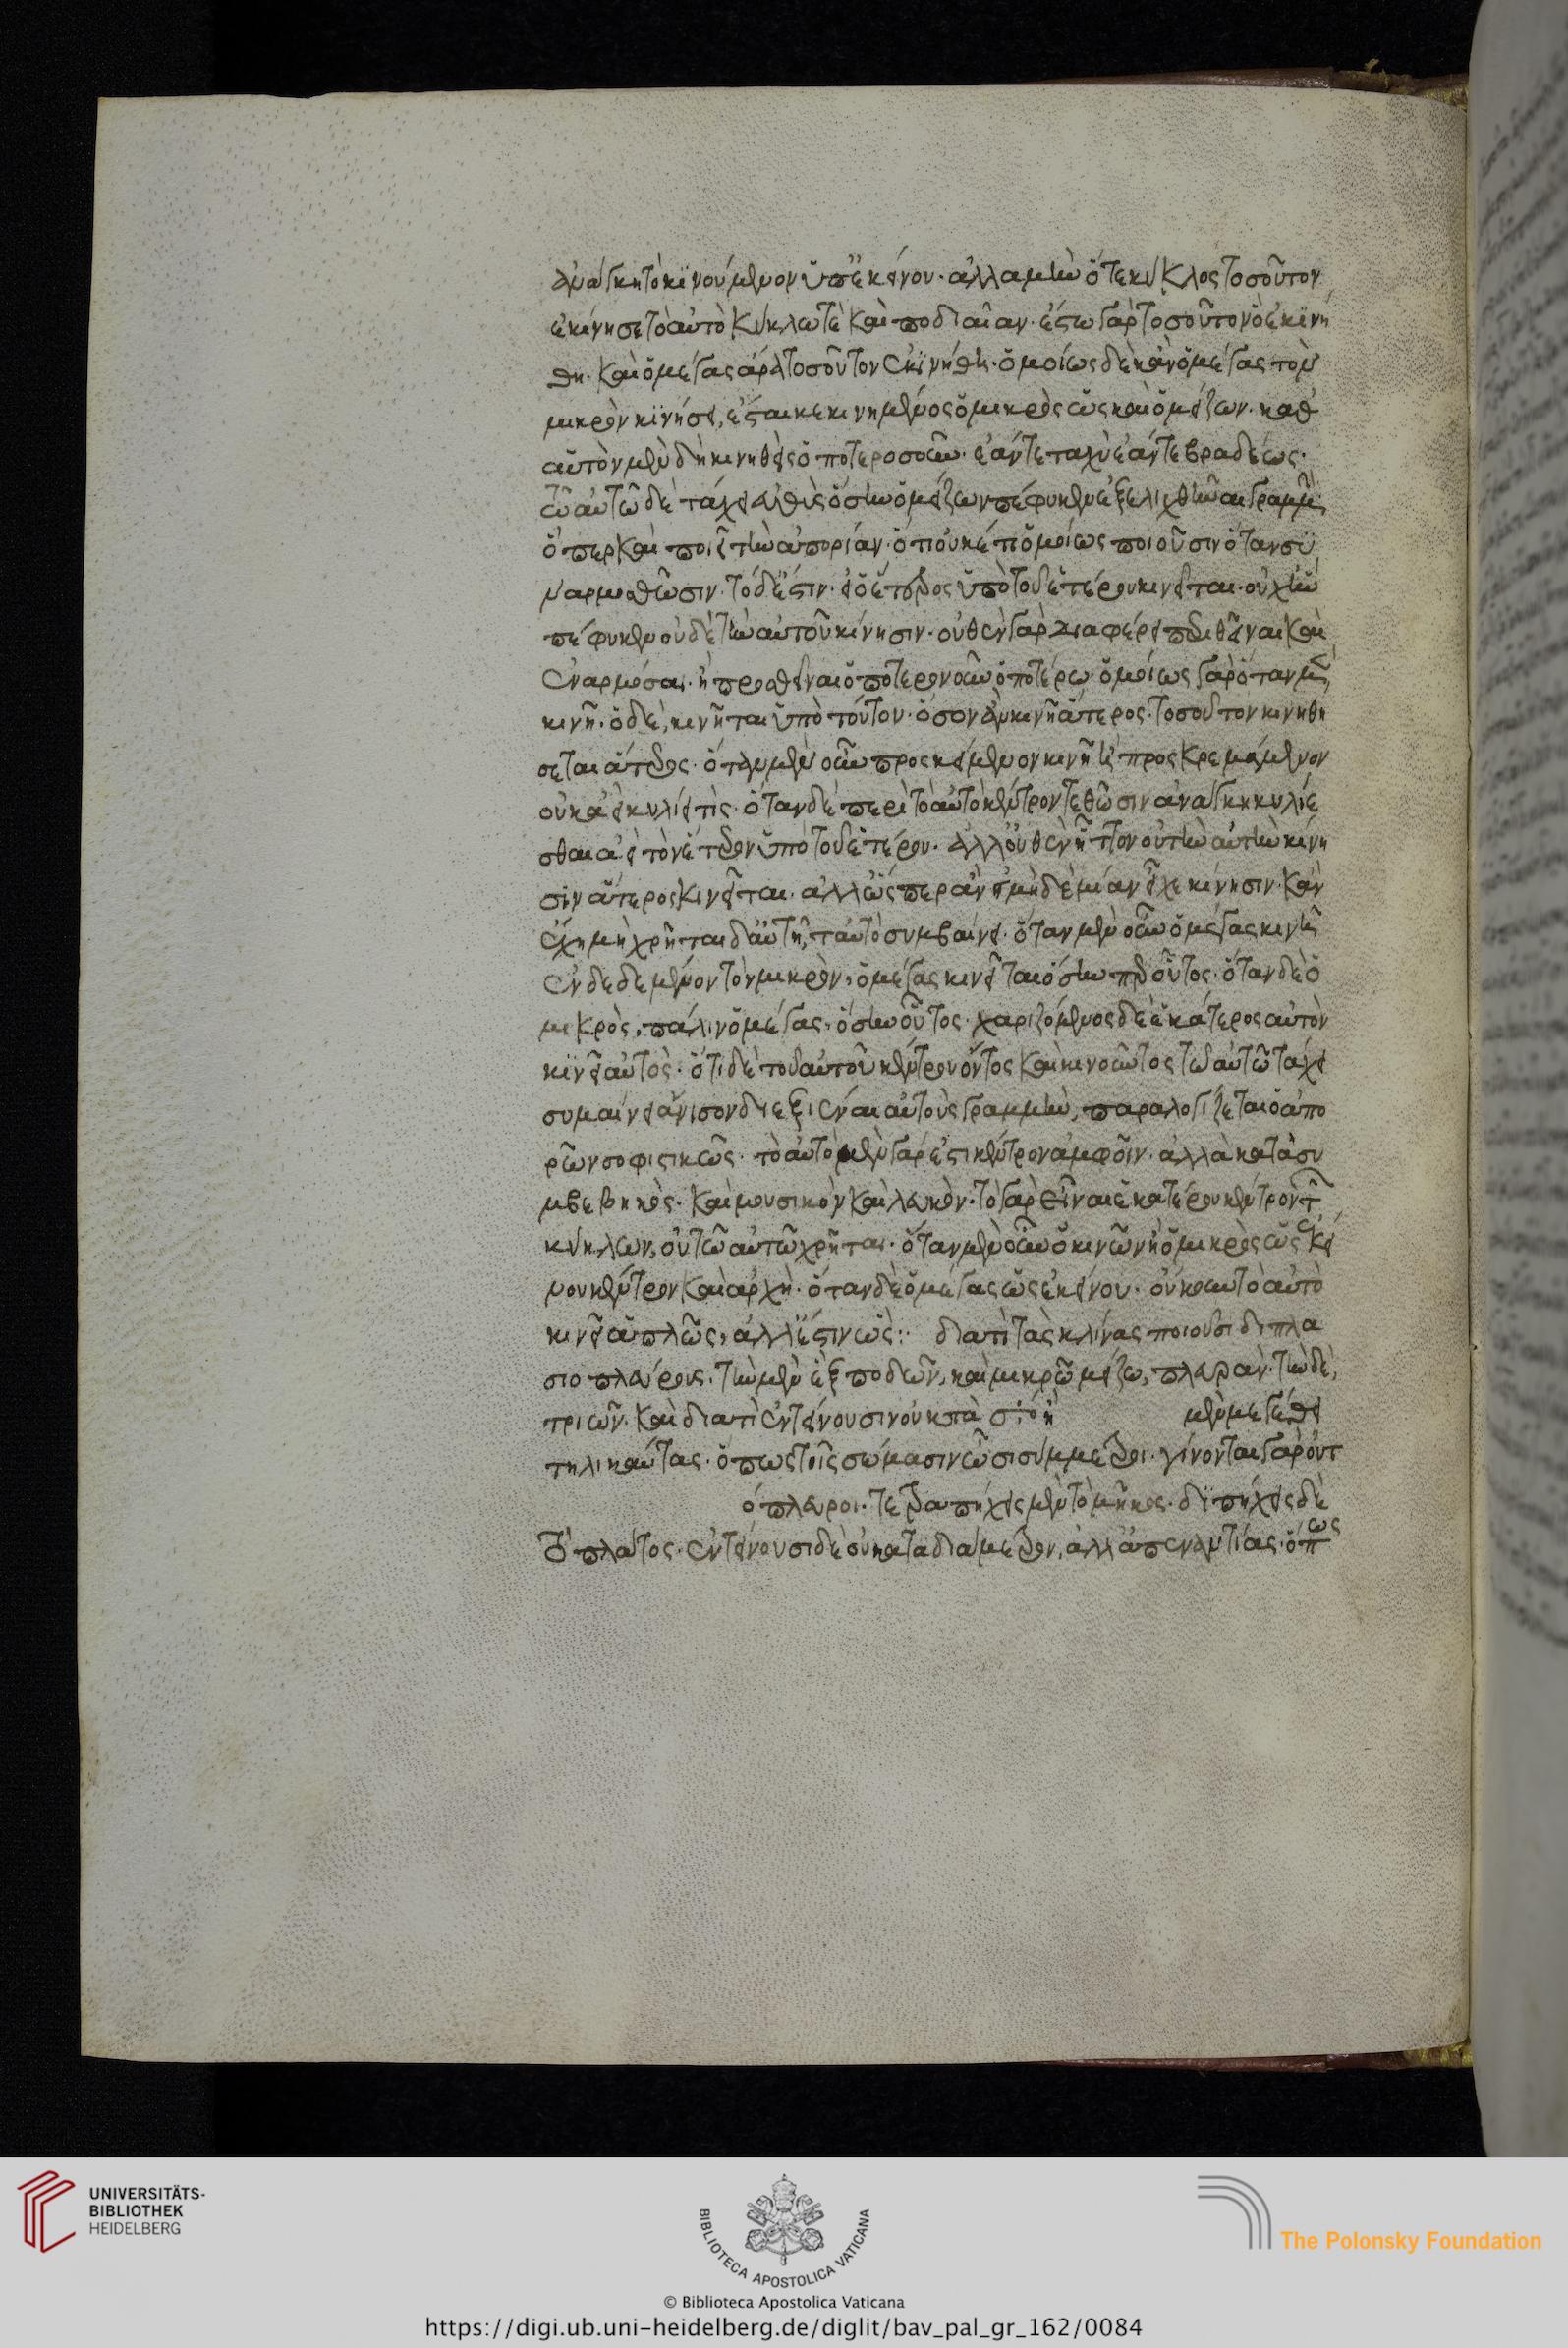 ἀνάγκη τὸ κινούμενον ὑπ' ἐκείνου. ἀλλὰ μὴν ὅ τε κύκλος τοσοῦτον
ἐκίνησε τὸ αὐτὸ κύκλω τὲ καὶ ποδιαίαν. ἔστω γὰρ τοσοῦτον ὃ ἐκινή
θη. καὶ ὁ μέγας ἄρα τοσοῦτον ἐκινήθη. ὁμοίως δὲ κἂν ὁ μέγας τὸν
μικρὸν κινήσει, ἔσται κεκινημένος ὁ μικρὸς ὡς καὶ ὁ μείζων. καθ'
αὑτὸν μὲν δὴ κινηθεὶς ὁποτεροσοῦν. ἐάν τε ταχὺ ἐάν τε βραδέως.
τῶ αὐτῶ δὲ τάχει εὐθὺς ὅσην ὁ μείζων πέφυκεν ἐξελιχθῆναι γραμμὴν
ὅπερ καὶ ποιεῖ τὴν ἀπορίαν. ὅτι οὐκέτι ὁμοίως ποιοῦσιν ὅταν συ
ναρμοθῶσιν. τὸ δ' ἔστιν. εἰ ὁ ἕτερος ὑπὸ τοῦ ἑτέρου κινεῖται. οὐχ ἣν
πέφυκεν οὐδὲ τὴν αὐτοῦ κίνησιν. οὐθὲν γὰρ διαφέρει περιθεῖναι καὶ
ἐναρμόσαι. ἢ προσθεῖναι ὁπότερον οὖν ὁποτέρω. ὁμοίως γὰρ ὅταν μὲν
κινῆ. ὁ δὲ, κινῆται ὑπὸ τούτου. ὅσον ἂν κινῆ ἅτερος. τοσοῦτον κινηθή
σεται ἅτερος. ὅταν μὲν οὖν προσκείμενον κινῆ ἢ προσκρεμάμενον
οὐκ ἀεὶ κυλίει τίς. ὅταν δὲ περὶ τὸ αὐτὸ κέντρον τεθῶσιν ἀνάγκη κυλίε
σθαι ἀεὶ τὸν ἕτερον ὑπὸ τοῦ ἑτέρου. ἀλλ' οὐθὲν ἧττον οὐ τὴν αὐτὴν κίνη
σιν ἅτερος κινεῖται. ἀλλ' ὥσπερ ἂν εἰ μὴδὲ μίαν εἶχε κίνησιν. κἂν
ἔχη μὴ χρῆται δ' αὐτῆ, ταὐτὸ συμβαίνει. ὅταν μὲν οὖν ὁ μέγας κινῆ
ἐνδεδεμένον τὸν μικρὸν, ὁ μέγας κινεῖται ὅσην περ οὗτος. ὅταν δὲ ὁ
μικρὸς, πάλιν ὁ μέγας, ὅσην οὗτος. χωριζόμενος δὲ ἑκάτερος αὑτὸν
κινεῖ αὐτὸς. ὅτι δὲ τοῦ αὐτοῦ κέντρου ὄντος καὶ κινοῦντος τῶ αὐτῶ τάχει
συμαίνει ἄνισον διεξιέναι αὐτοὺς γραμμὴν, παραλογίζεται ὁ ἀπο
ρῶν σοφιστικῶς. τὸ αὐτὸ μὲν γάρ ἐστι κέντρον ἀμφοῖν. ἀλλὰ κατὰ συ
μβεβηκὸς. καὶ μουσικὸν καὶ λευκὸν. τὸ γὰρ εἶναι ἑκατέρου κέντρον τῶν
κύκλων, οὐ τῶ αὐτῶ χρῆται. ὅταν μὲν οὖν ὁ κινῶν ἦ ὁ μικρὸς ὡς ἐκεί
νου κέντρον καὶ ἀρχὴ. ὅταν δὲ ὁ μέγας ὡς ἐκείνου. οὔκουν τὸ αὐτὸ
κινεῖ ἁπλῶς, ἀλλ' ἔστιν ὡς: διατὶ τὰς κλίνας ποιοῦσι διπλα
σιοπλεύρους. τὴν μὲν ἓξ ποδῶν, καὶ μικρῶ μείζω, πλευρὰν. τὴν δὲ,
τριῶν. καὶ διατὶ ἐντείνουσιν οὐκ μὲν μεγέθει
τηλικαύτας. ὅπως τοῖς σώμασιν ὦσι σύμμετροι. γίνονται γὰρ οὐτ
όπλευροι. τετραπήχεις μὲν τὸ μῆκος. διπήχεις δὲ
τὸ πλάτος. ἐντείνουσι δὲ οὐ κατὰ διάμετρον, ἀλλ' ἀπεναντίας. ὅπως
UNIVERSITÄTS-
BIBLIOTHEK
HEIDELBERG
BIBLIOTECA APOSTOLICA VATICANA
The Polonsky Foundation
© Biblioteca Apostolica Vaticana
https://digi.ub.uni-heidelberg.de/diglit/bav_pal_gr_162/0084